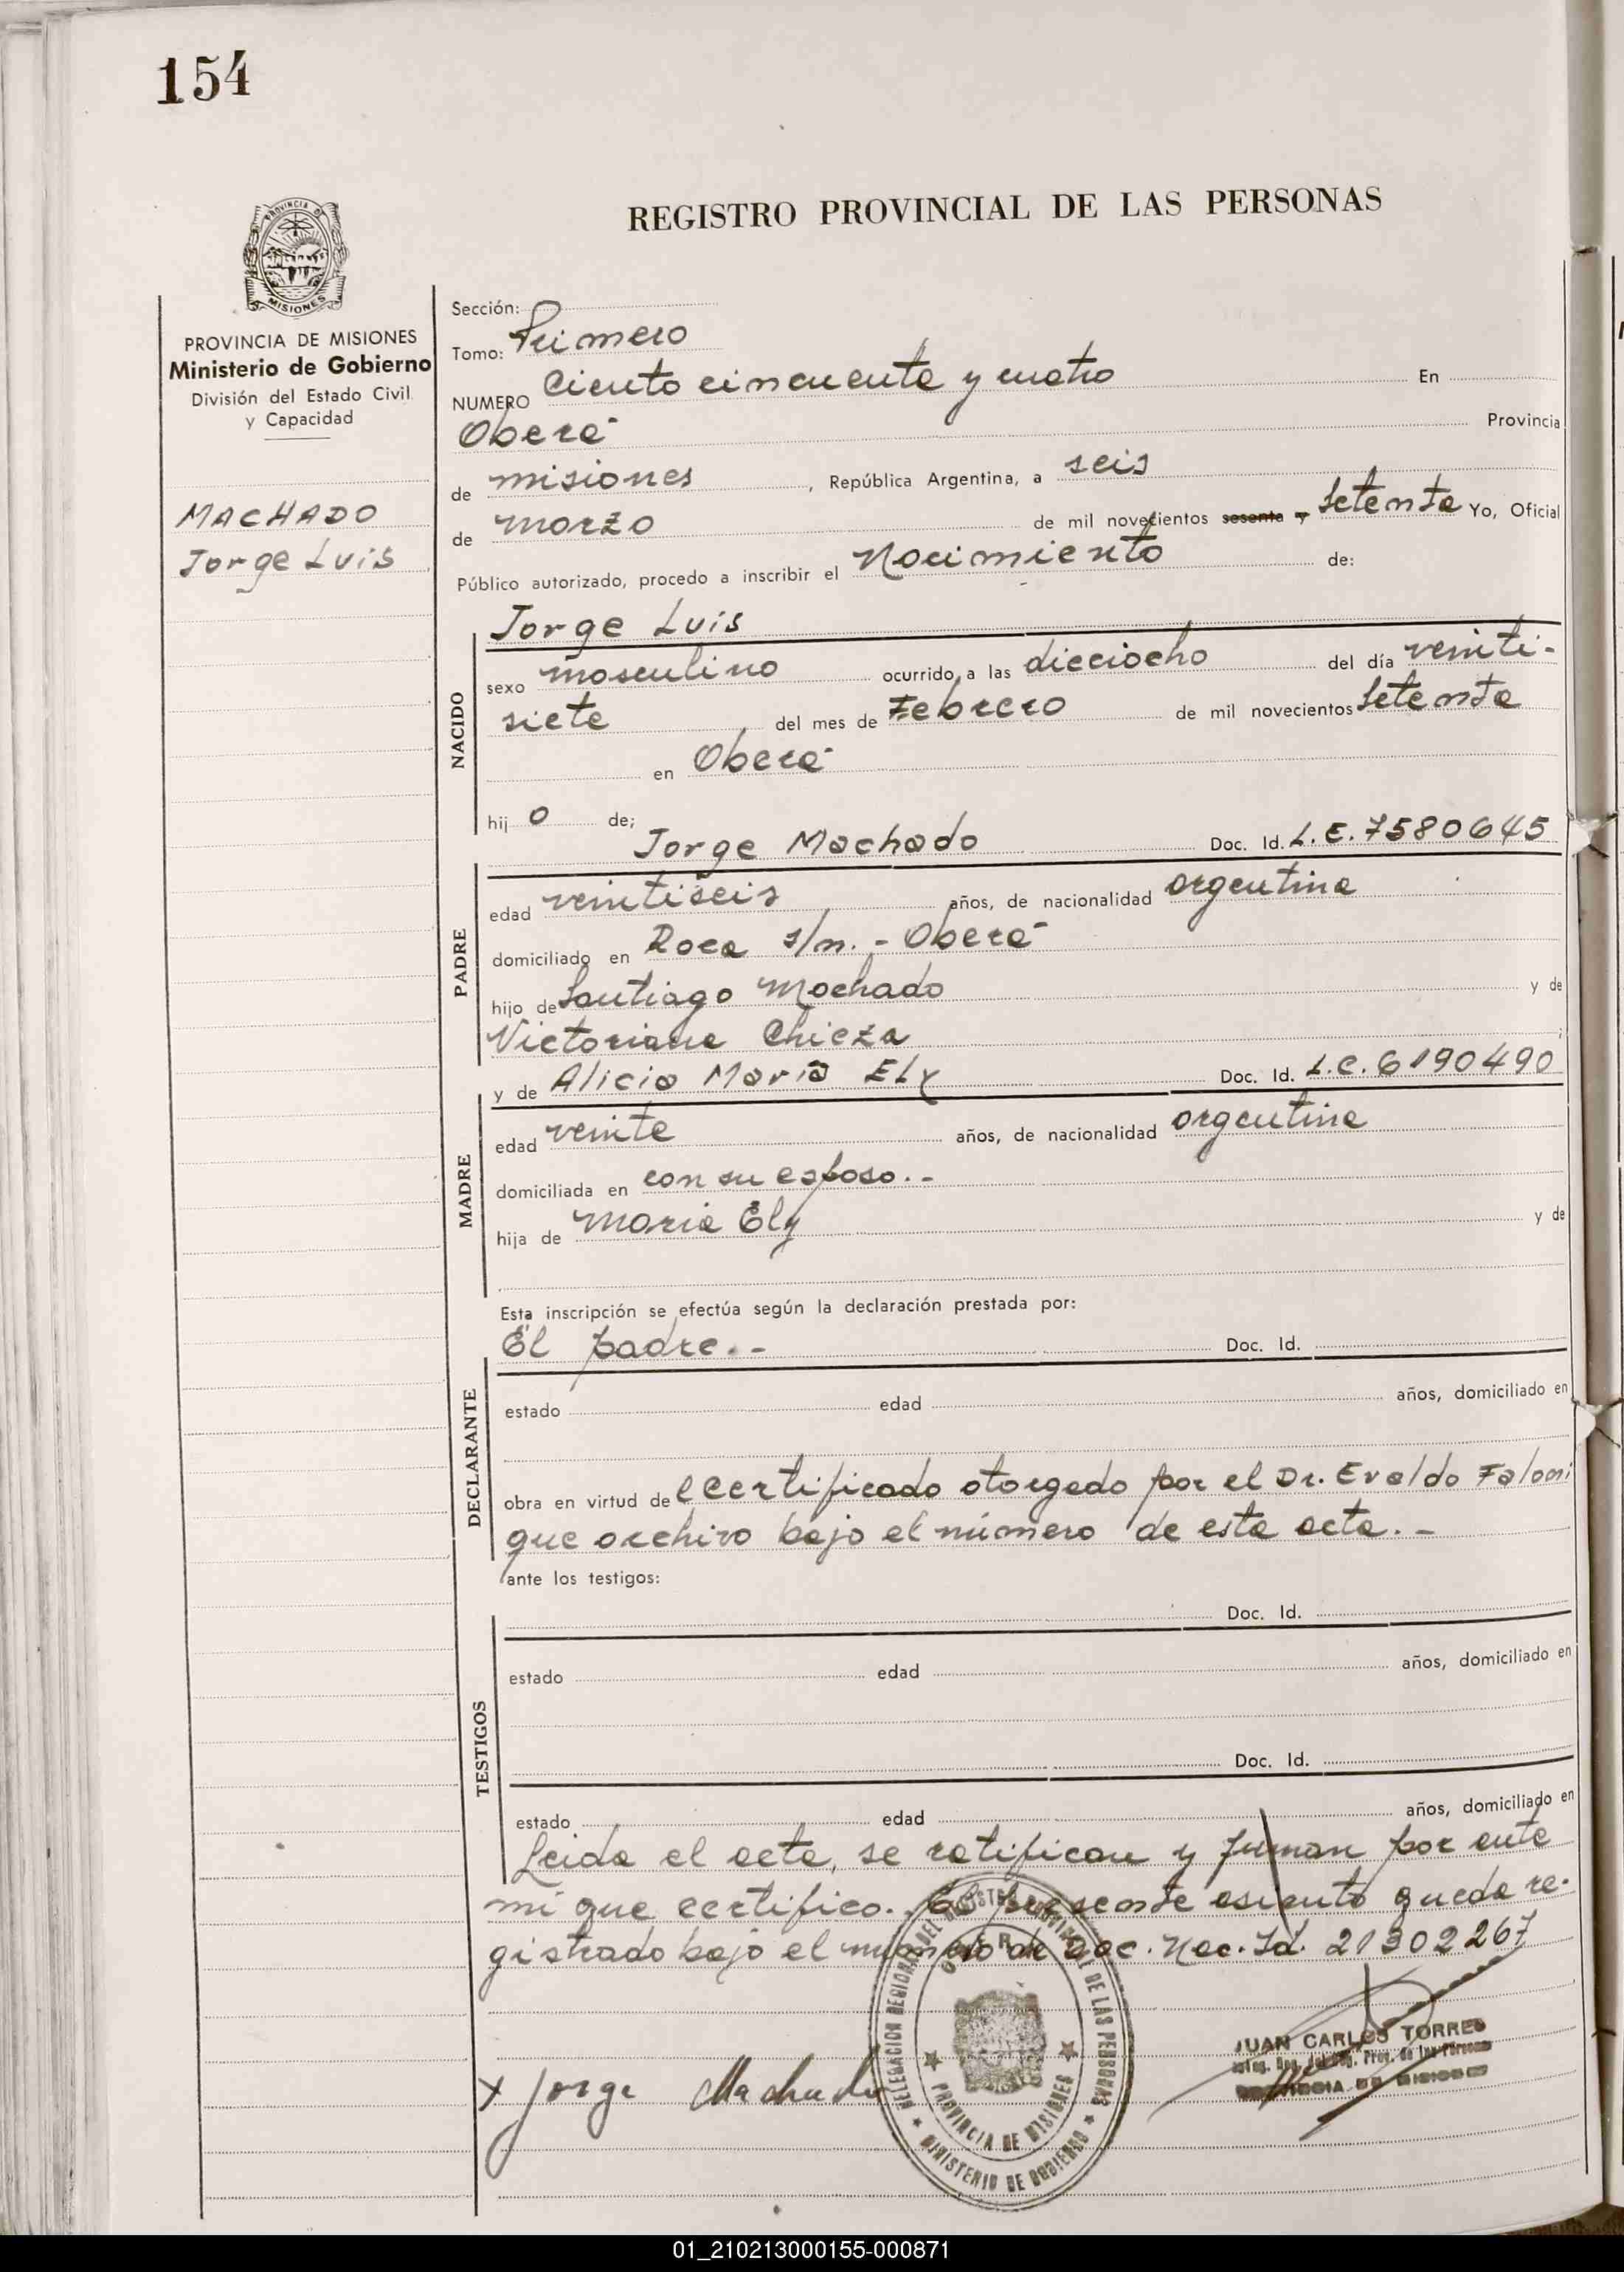 154
PROVINCIA DE
MISIONES
REGISTRO PROVINCIAL DE LAS PERSONAS
PROVINCIA DE MISIONES
Ministerio de Gobierno
División del Estado Civil
y Capacidad
MACHADO
Jorge Luis
Sección:
Tomo: Primero
NUMERO Ciento cincuenta y cuatro En
Oberá Provincia
de misiones, República Argentina, a seis
de marzo de mil novecientos sesenta y setenta Yo, Oficial
Público autorizado, procedo a inscribir el Nacimiento de:
Jorge Luis
NACIDO
sexo masculino ocurrido a las dieciocho del día veinti-
siete del mes de Febrero de mil novecientos setenta
en Oberá
hij o de;
Jorge Machado Doc. Id. L.E. 7580645
PADRE
edad veintiseis años, de nacionalidad argentina
domiciliado en Roca s/n. - Oberá
hijo de Santiago Machado y de
Victoriana Chieza;
y de Alicia María Ely Doc. Id. L.C. 6190490
MADRE
edad veinte años, de nacionalidad argentina
domiciliada en con su esposo.-
hija de Maria Ely y de
Esta inscripción se efectúa según la declaración prestada por:
El padre.- Doc. Id.
DECLARANTE
estado edad años, domiciliado en
obra en virtud del certificado otorgado por el Dr. Evaldo Faloni
que archivo bajo el número de esta acta.-
ante los testigos:
Doc. Id.
TESTIGOS
estado edad años, domiciliado en
Doc. Id.
estado edad años, domiciliado en
Leida el acta, se ratifican y firman por ante
mi que certifico. El presente asiento queda re-
gistrado bajo el numero de Doc. Nac. Id. 21302267
DELEGACION REGIONAL DEL REGISTRO PROVINCIAL DE LAS PERSONAS
OBERA
PROVINCIA DE MISIONES
MINISTERIO DE GOBIERNO
x Jorge Machado
JUAN CARLOS TORRES
PROVINCIA DE MISIONES
01_210213000155-000871